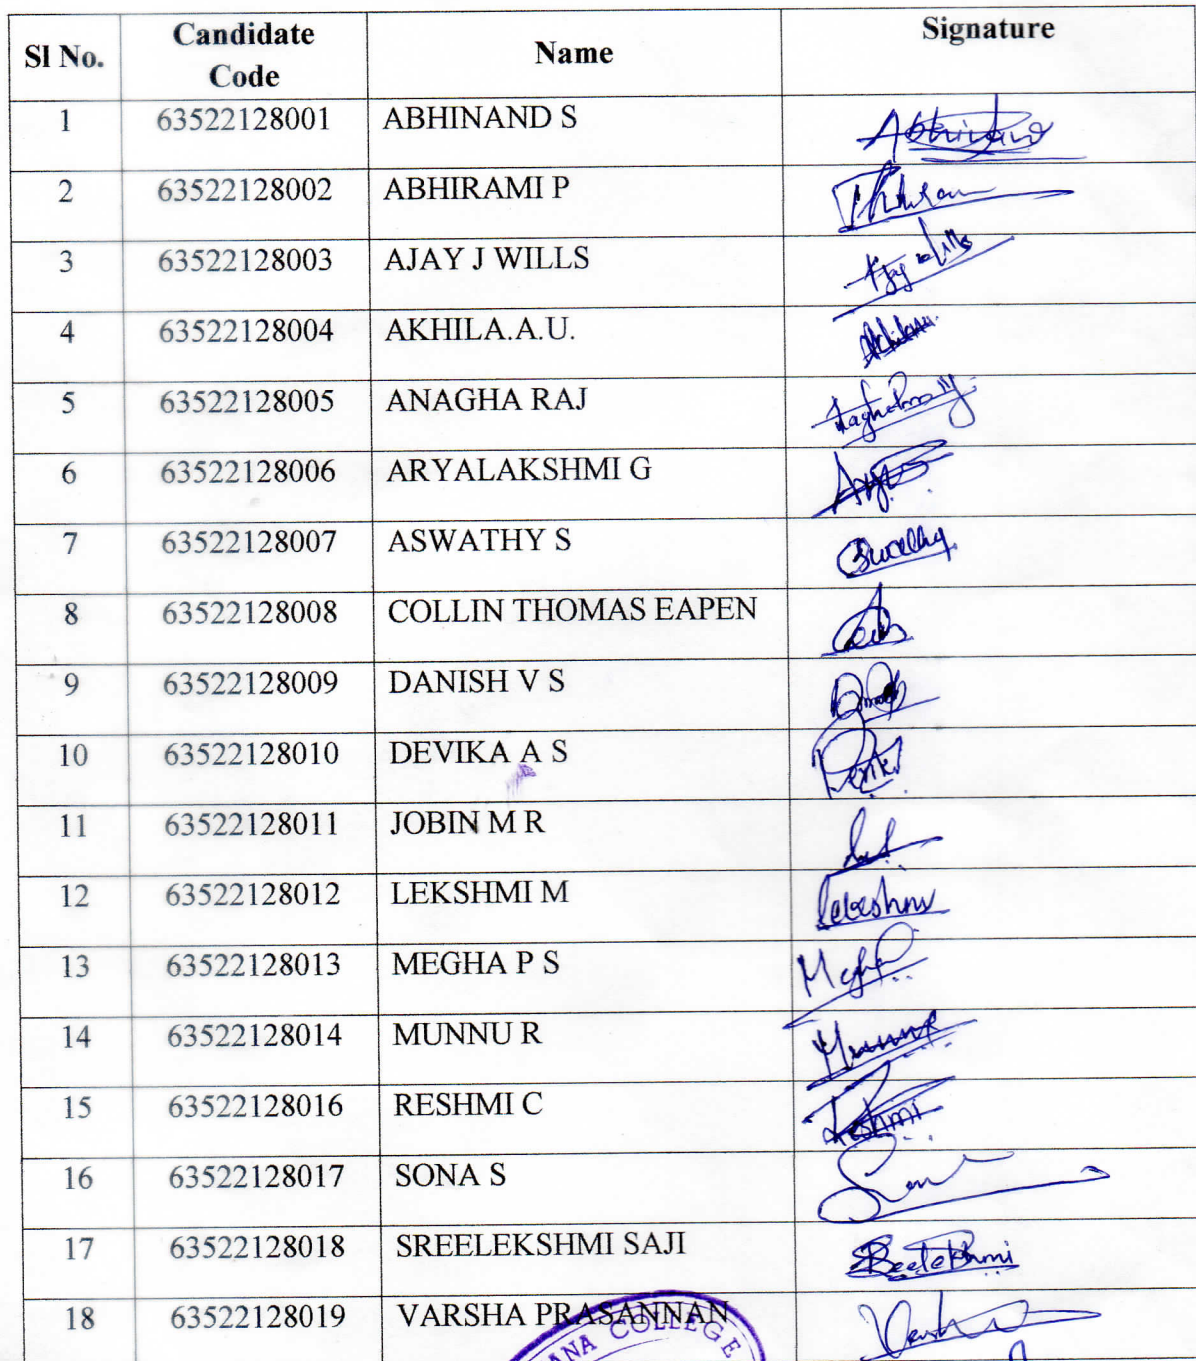 Sl No. Candidate Code Name Signature
1 63522128001 ABHINAND S Abhinand
2 63522128002 ABHIRAMI P
3 63522128003 AJAY J WILLS Ajay Wills
4 63522128004 AKHILA.A.U. Akhila
5 63522128005 ANAGHA RAJ
6 63522128006 ARYALAKSHMI G
7 63522128007 ASWATHY S
8 63522128008 COLLIN THOMAS EAPEN
9 63522128009 DANISH V S
10 63522128010 DEVIKA A S
11 63522128011 JOBIN M R
12 63522128012 LEKSHMI M
13 63522128013 MEGHA P S Megha
14 63522128014 MUNNU R Munnu
15 63522128016 RESHMI C Reshmi
16 63522128017 SONA S
17 63522128018 SREELEKSHMI SAJI
18 63522128019 VARSHA PRASANNAN
COLLEGE